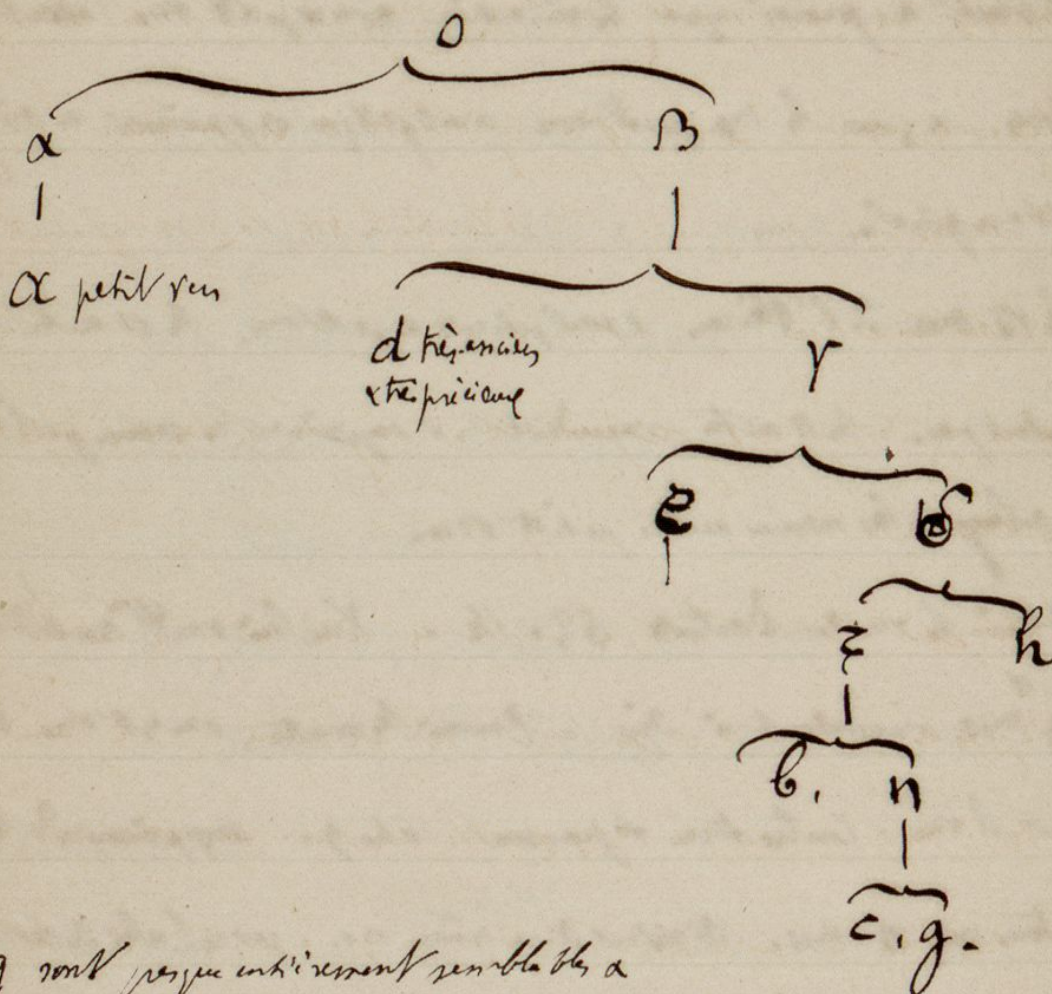 O
α β
α petit
d très ancien
& très précieux
γ
e δ
z h
b. η
c. g.
g sont presque entièrement semblables α